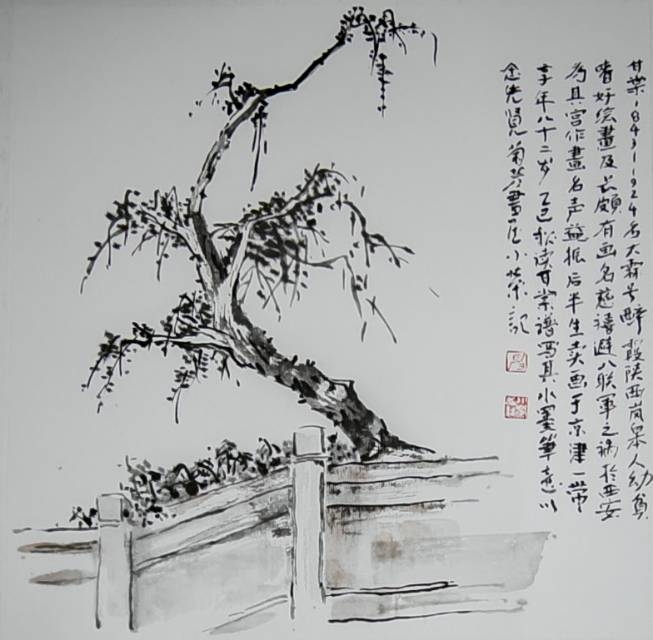 甘棠1843-1924名大霖号醉霞陕西岚皋人幼貧
嗜好绘畫及长頗有画名慈禧避八联军之祸於西安
为其宫作畫名声遂振后半生卖画于京津一带
享年八十二岁乙巳秋读甘棠谱写其小墨筆意以
念先贤菊芳書屋小荣记